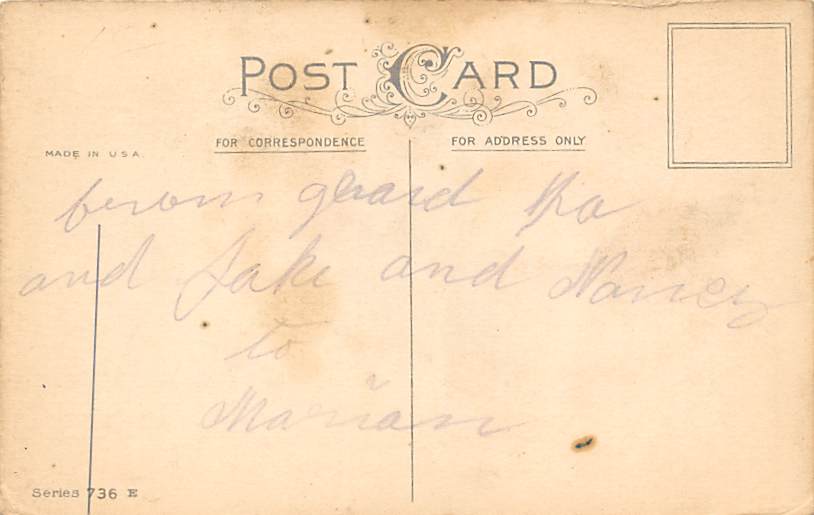 POST CARD
FOR CORRESPONDENCE
FOR ADDRESS ONLY
MADE IN U.S.A.
from grand pa
and Jake and Nancy
to
Marian
Series 736 E